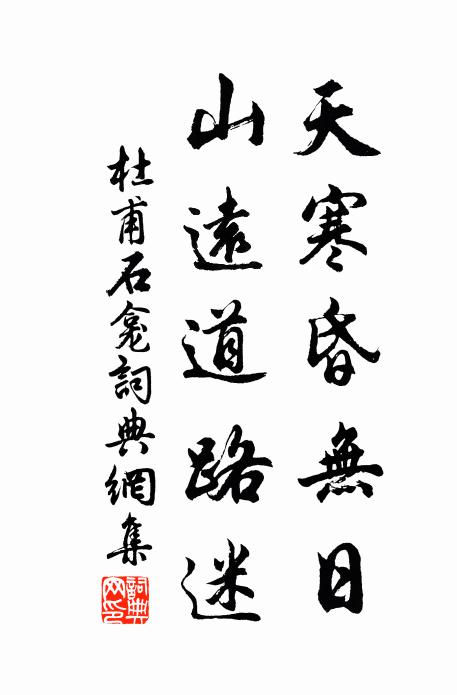 天寒昏無日
山遠道路迷
杜甫石龕詞典網集
詞典
网印